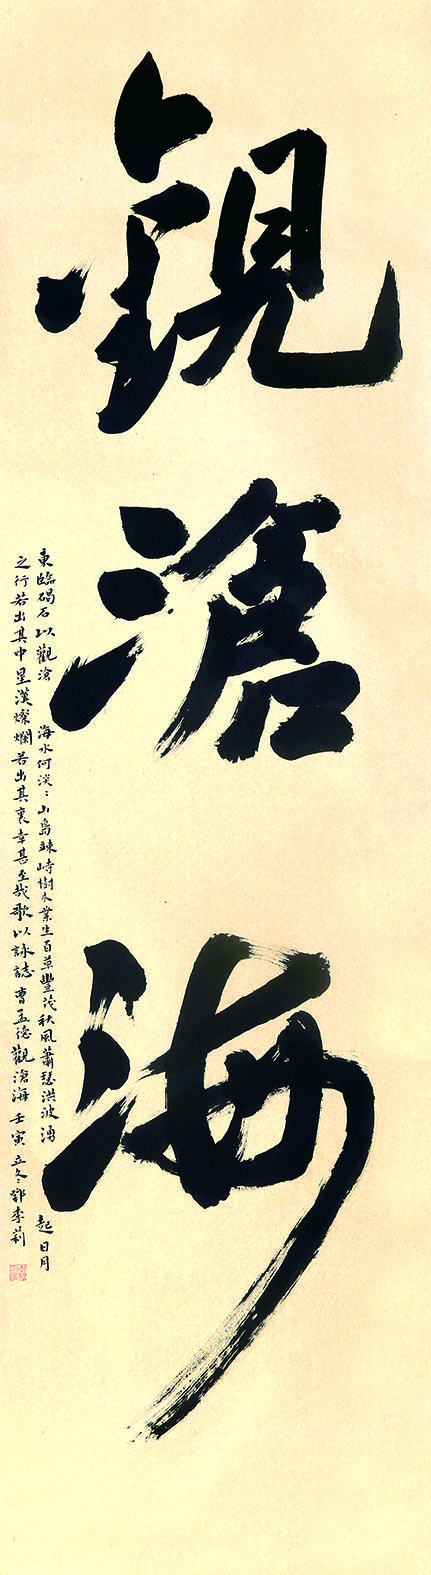 觀滄海
東臨碣石以觀滄海水何淡〻山島竦峙樹木業生百草豐茂秋風蕭瑟洪波湧起日月
之行若出其中星漢燦爛若出其裏幸甚至哉歌以詠誌曹孟德觀滄海壬寅立冬鄧李莉